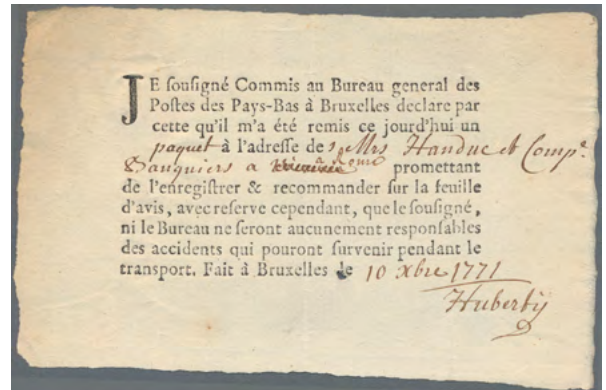 JE ſouſigné Commis au Bureau general des
Poſtes des Pays-Bas à Bruxelles declare par
cette qu'il m'a été remis ce jourd'hui un
paquet à l'adreſſe de Mrs Handuc et Comp.e
Banquiers a Rome promettant
de l'enregiſtrer & recommander ſur la feuille
d'avis, avec reserve cependant, que le ſouſigné,
ni le Bureau ne ſeront aucunement reſponſables
des accidents qui pouront ſurvenir pendant le
transport. Fait à Bruxelles le 10 xbre 1771
Huberty